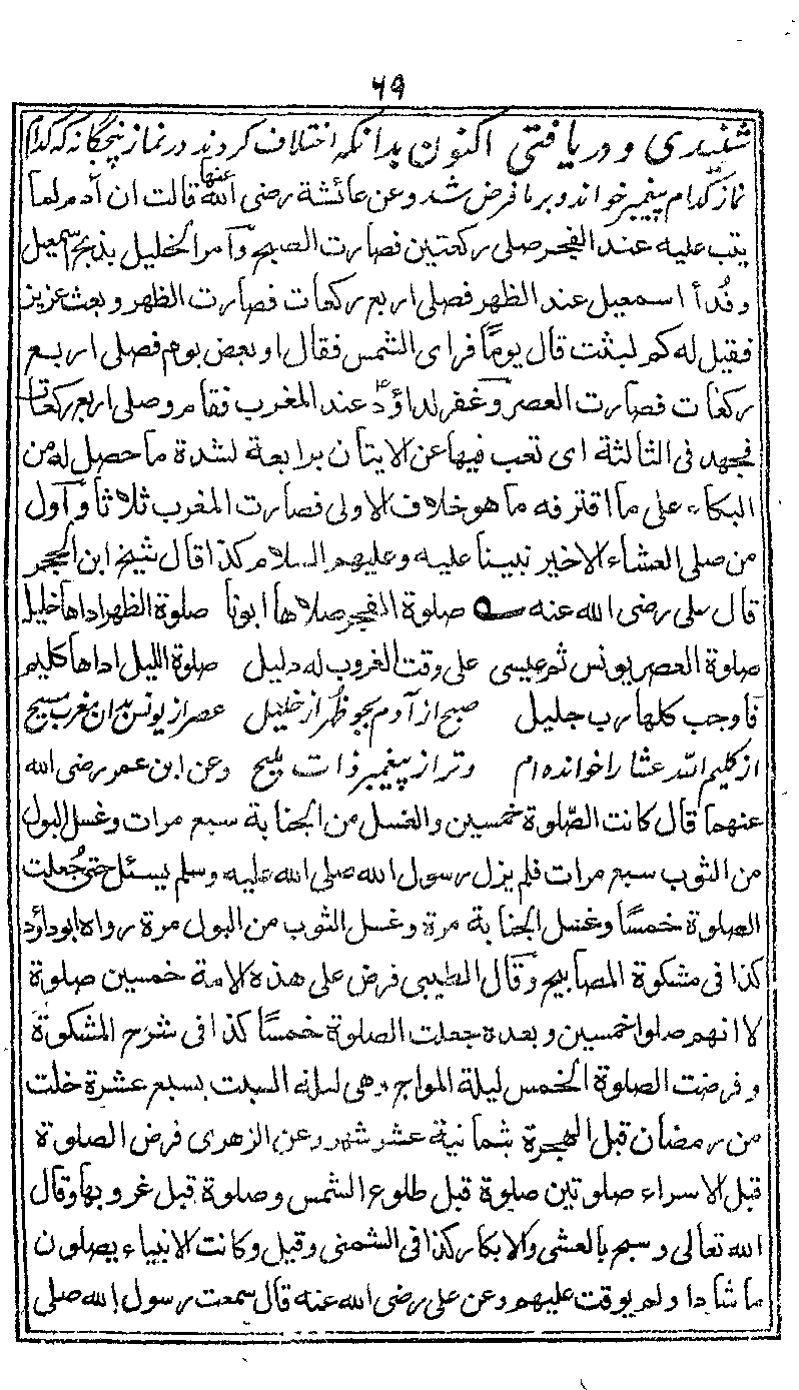 ۶۹
شنیدی و دریافتی اکنون بدانکہ اختلاف کردند در نماز پنجگانہ کہ کدام
نماز کدام پیغمبر خواند و بر ما فرض شد وعن عائشة رضی الله عنها قالت ان آدم لما
یتب علیه عند الفجر صلی رکعتین فصارت الصبح وآمر الخلیل بذبح اسمعیل
وفُدأ اسمعیل عند الظهر فصلی اربع رکعات فصارت الظهر وبعث عزیز
فقیل له کم لبثت قال یومًا فرای الشمس فقال او بعض یوم فصلی اربع
رکعات فصارت العصر وغفر لداؤد عند المغرب فقام وصلی اربع رکعات
فجهد فی الثالثة ای تعب فیها عن الایتان برابعة لشدة ما حصل له من
البکاء علی ما اقترفه ما هو خلاف الاولی فصارت المغرب ثلاثا وآول
من صلی العشاء الاخیر نبینا علیه وعلیهم السلام کذا قال شیخ ابن الحجر
قال علی رضی الله عنه صلوة الفجر صلاها ابونا صلوة الظهر اداها خلیل
صلوة العصر یونس ثم عیسی علی وقت الغروب له دلیل صلوة اللیل اداها کلیم
فاوجب کلها رب جلیل صبح از آدم بجو ظهر از خلیل عصر از یونس بدان مغرب مسیح
از کلیم اللہ عشا را خواندہ ام وتر از پیغمبر ذات ملیح وعن ابن عمر رضی الله
عنهما قال کانت الصّلوة خمسین والغسل من الجنابة سبع مرات وغسل البول
من الثوب سبع مرات فلم یزل رسول الله صلی الله علیه وسلم یسئل حتی جُعلت
الصلوة خمسًا وغسل الجنابة مرة وغسل الثوب من البول مرة رواه ابو داؤد
کذا فی مشکوة المصابیح وقال الطیبی فرض علی هذه الامة خمسین صلوة
لا انهم صلوا خمسین وبعده جعلت الصلوة خمسًا کذا فی شرح المشکوة
وفرضت الصلوة الخمس لیلة المواج وهی لیلة السبت بسبع عشرة خلت
من رمضان قبل الهجرة بثمانیة عشر شهر وعن الزهری فرض الصلوة
قبل الاسراء صلوتین صلوة قبل طلوع الشمس وصلوة قبل غروبها وقال
الله تعالی وسبح بالعشی والابکار کذا فی الشمنی وقیل وکانت الانبیاء یصلون
ما شاءوا ولم یوقت علیهم وعن علی رضی الله عنه قال سمعت رسول الله صلی